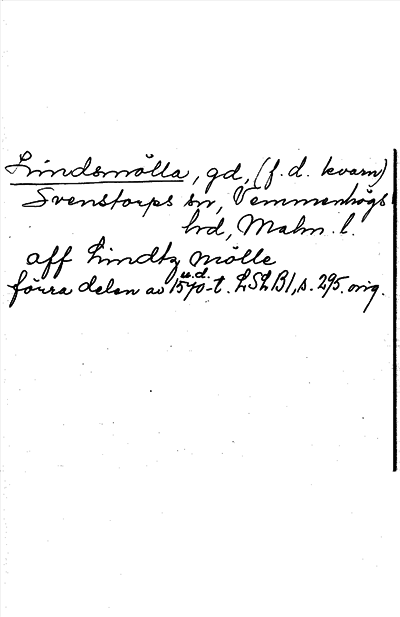 Lindsmölla, gd, (f.d. kvarn)
Svenstorps sn, Vemmenhögs
hd, Malm. l.
aff Lindtz mölle
u.d.
förra delen av 1570-t. LSLB1, s. 295. orig.